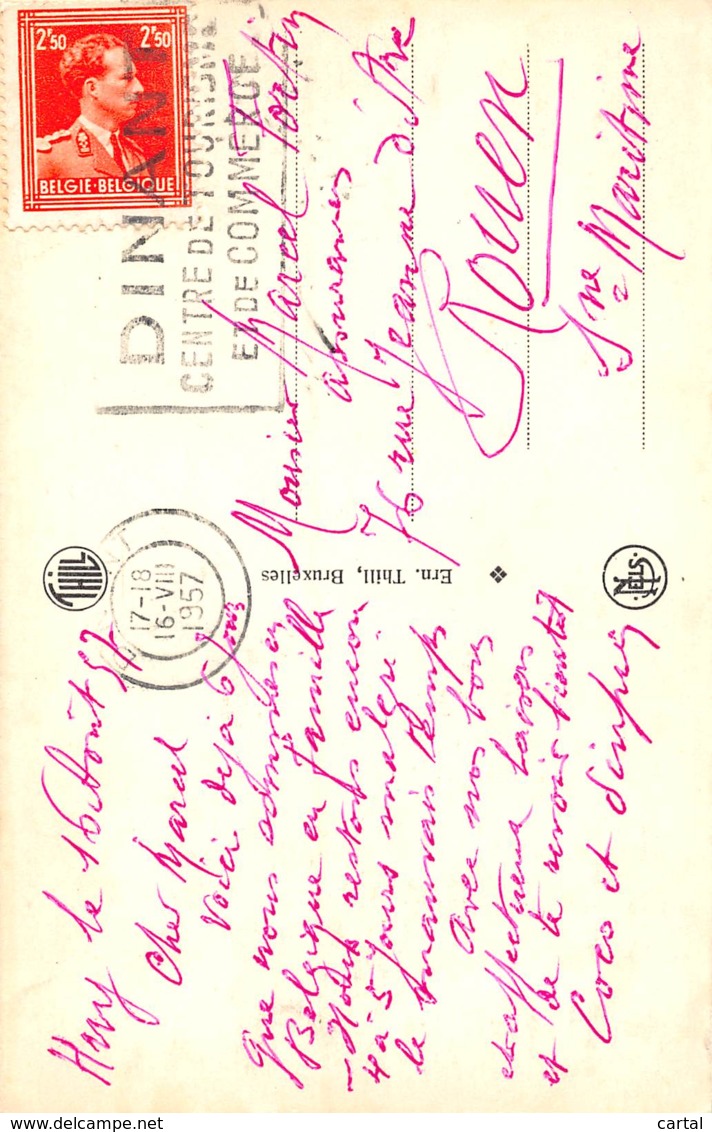 2'50 2'50
BELGIE-BELGIQUE
DINANT
CENTRE DE TOURISME
ET DE COMMERCE
17-18
16-VIII
1957
THILL
Ern. Thill, Bruxelles
NELS
le 16 Août 57
Cher Marcel
Voici déjà 6 jours
que nous sommes en
Belgique en famille
Nous restons encore
4 à 5 jours malgré
le mauvais temps
Avec nos bons
et affectueux baisers
et de te revoir bientôt
Coco et
Monsieur Marcel
Assurances
76 rue Jeanne d'Arc
Rouen
Sne Maritime
delcampe.net
cartal